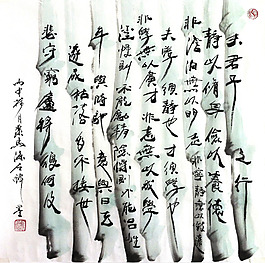 夫君子之行
静以修身俭以养德
非淡泊无以明志非宁静无以致远
夫学须静也才须学也
非学无以广才非志无以成学
淫慢则不能励精险躁则不能冶性
年与时驰意与日去
遂成枯落多不接世
悲守穷庐将复何及
丙申年月